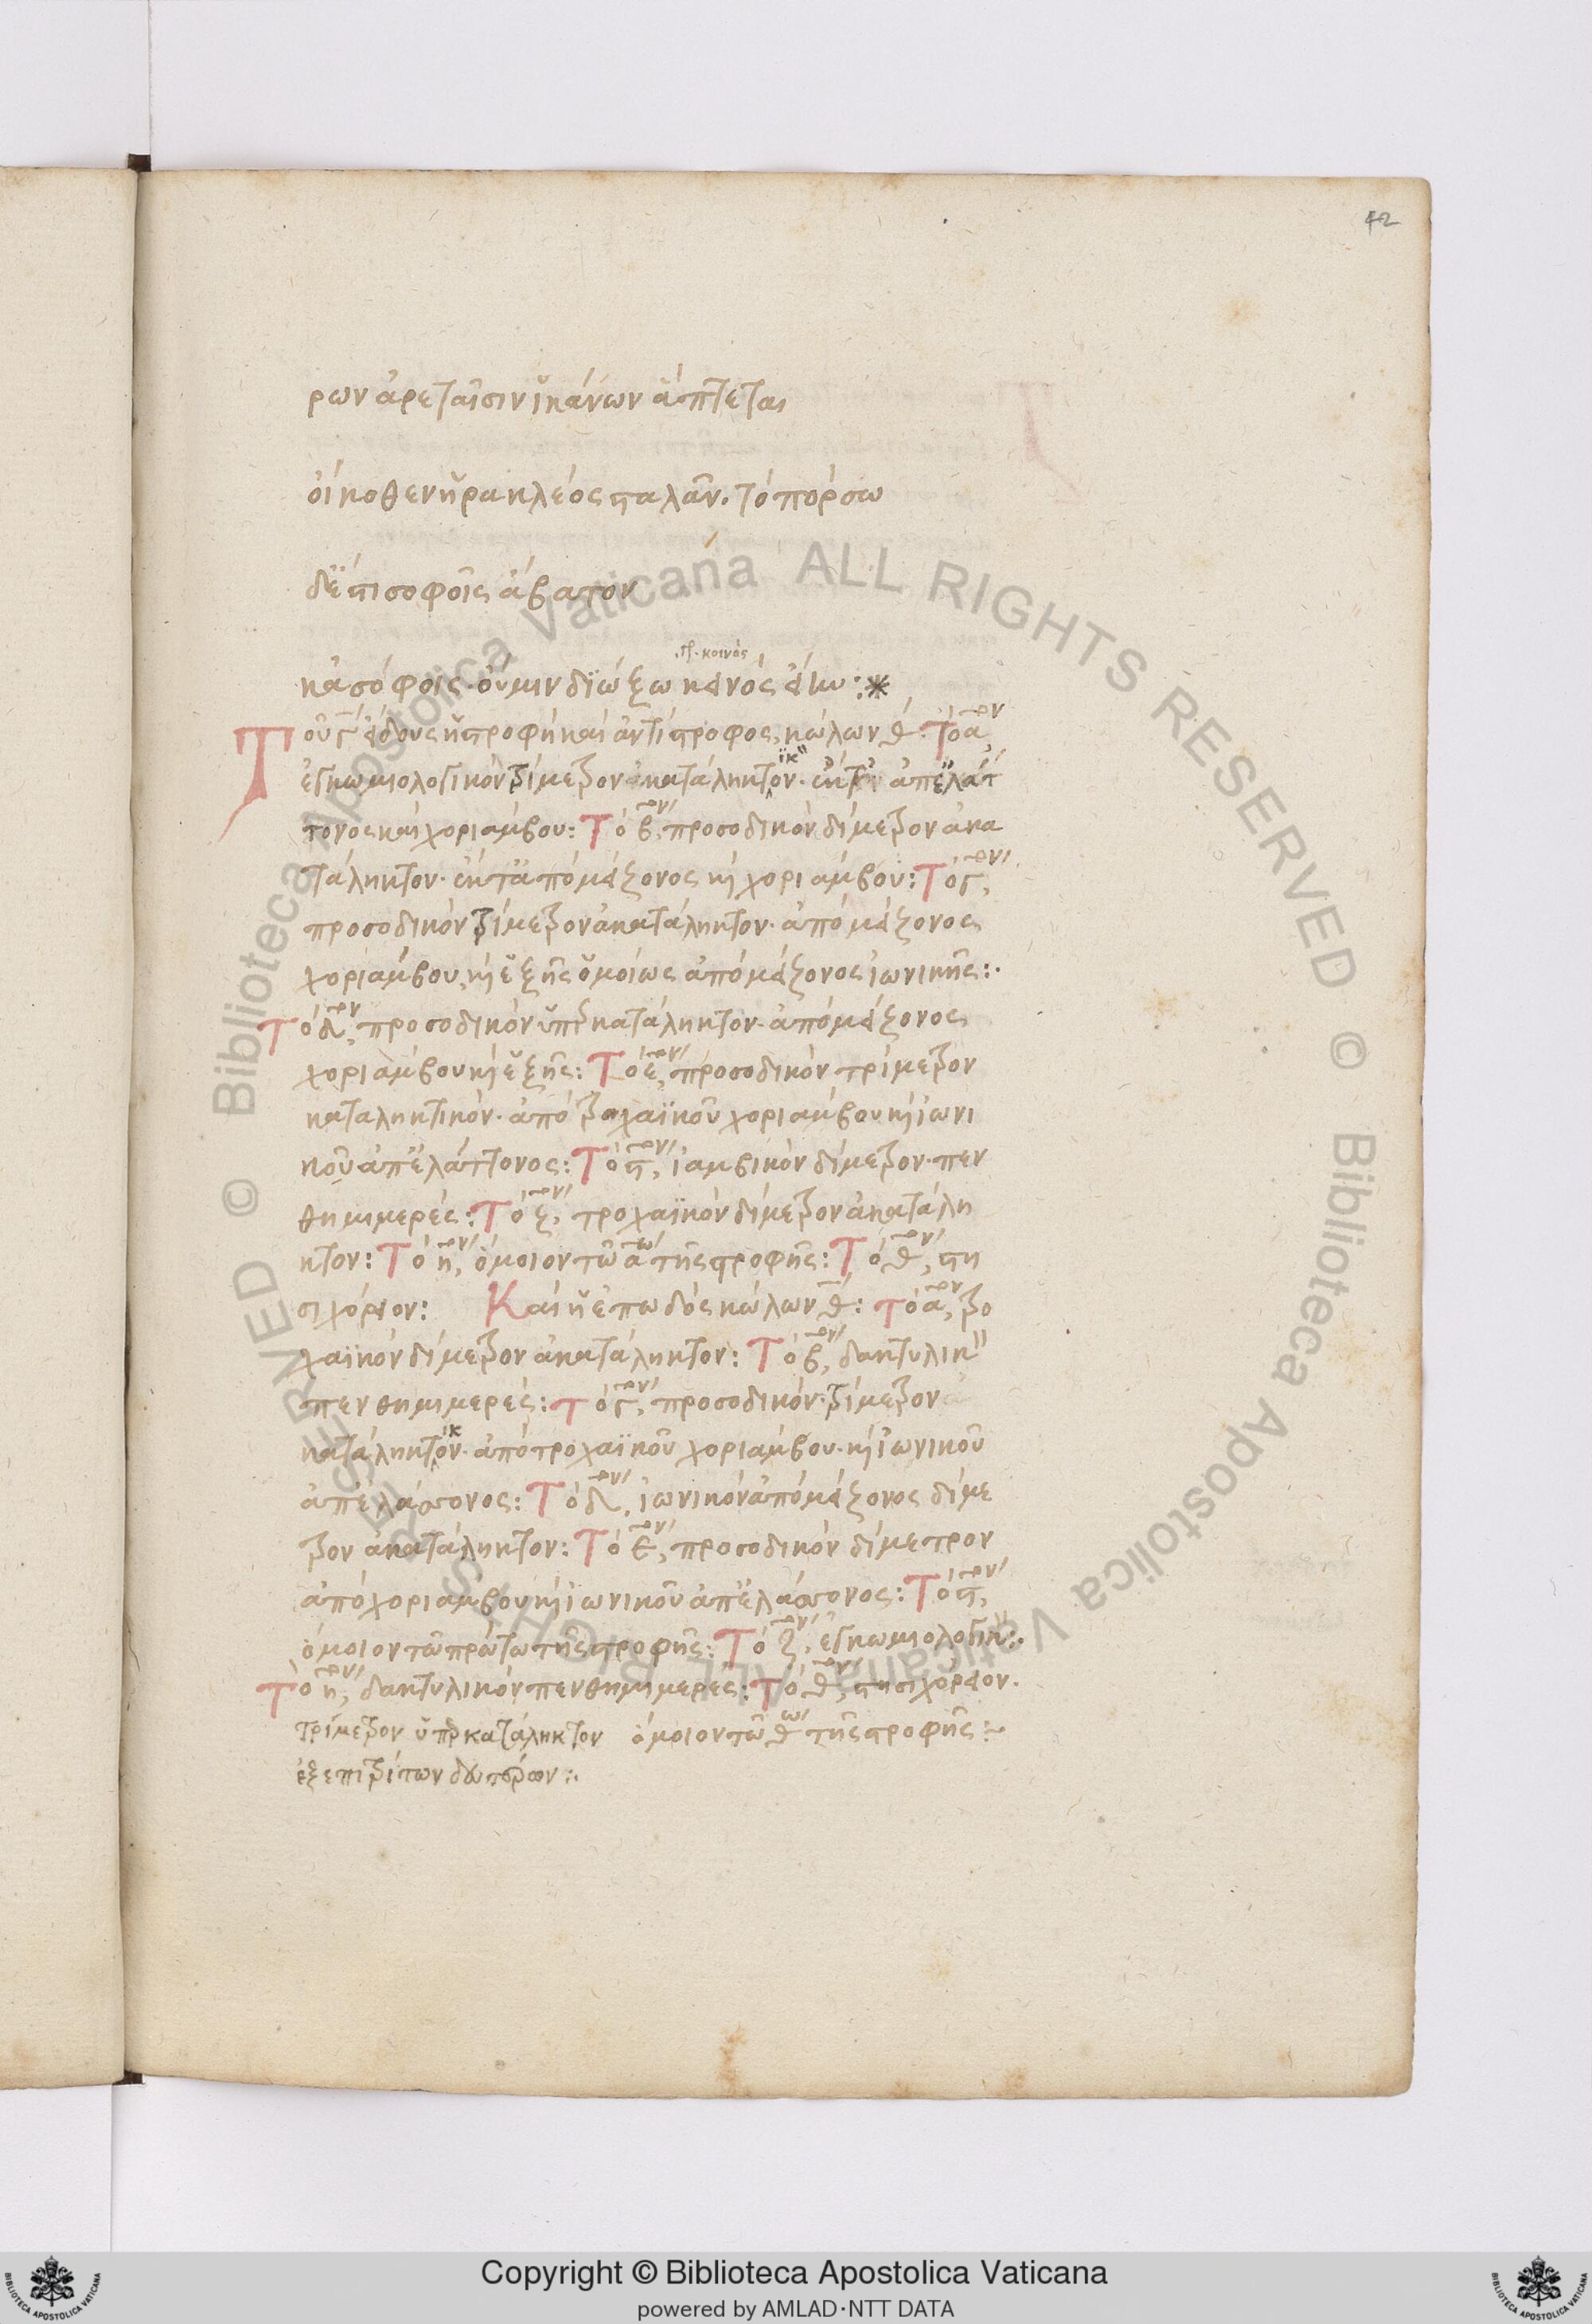 42
ρων ἀρεταῖσιν ἱκάνων ἅπτεται
οἴκοθεν ἡρακλέος σταλᾶν. τὸ πόρσω
δ' ἔστι σοφοῖς ἄβατον
κἀσόφοις· οὔ μιν διώξω κεινὸς εἴην:*
κοινός
Τοῦ γ εἴδους ἡ στροφὴ καὶ ἀντίστροφος, κώλων θ: Τὸ α ον
ἐγκωμιολογικὸν τρίμετρον ἀκατάληκτον· ἀπ' ἐλάτ
ικ
τονος καὶ χοριάμβου: Τὸ β ον, προσοδικὸν δίμετρον ἀκα
τάληκτον· ἀπὸ μείζονος κὴ χοριάμβου: Τὸ γ ον,
προσοδικὸν τρίμετρον ἀκατάληκτον· ἀπὸ μείζονος
χοριάμβου, κὴ ἑξῆς ὁμοίως ἀπὸ μείζονος ἰωνικῆς:·
Τὸ δ ον, προσοδικὸν ὑπερκατάληκτον· ἀπὸ μείζονος
χοριάμβου κὴ ἑξῆς: Τὸ ε ον, προσοδικὸν τρίμετρον
καταληκτικόν· ἀπὸ τροχαϊκοῦ χοριάμβου κὴ ἰωνι
κοῦ ἀπ' ἐλάττονος: Τὸ ϛ ον, ἰαμβικὸν δίμετρον· πεν
θημιμερές: Τὸ ζ ον, τροχαϊκὸν δίμετρον ἀκατάλη
κτον: Τὸ η ον, ὅμοιον τῶ α ω τῆς στροφῆς: Τὸ θ ον, στη
σιχόριον: Καὶ ἡ ἐπωδὸς κώλων θ: τὸ α ον, τρο
χαϊκὸν δίμετρον ἀκατάληκτον: Τὸ β ον, δακτυλικ
πενθημιμερές: τὸ γ ον, προσοδικὸν· τρίμετρον
κατάληκτον· ἀπὸ τροχαϊκοῦ χοριάμβου· κὴ ἰωνικοῦ
ικ
ἀπ' ἐλάσσονος: Τὸ δ ον, ἰωνικὸν ἀπὸ μείζονος δίμε
τρον ἀκατάληκτον: Τὸ ε ον, προσοδικὸν δίμετρον
ἀπὸ χοριάμβου κὴ ἰωνικοῦ ἀπ' ἐλάσσονος: Τὸ ϛ ον,
ὅμοιον τῶ πρώτω τῆς στροφῆς: Τὸ ζ ον, ἐγκωμιολογικ:·
Τὸ η ον, δακτυλικὸν πενθημιμερές: τὸ θ ον, στησιχόρειον·
τρίμετρον ὑπερκατάληκτον ὅμοιον τῶ θ ω τῆς στροφῆς:~
ἐξ ἐπιτρίτων δευτέρων:·
Copyright © Biblioteca Apostolica Vaticana
powered by AMLAD·NTT DATA
© Biblioteca Apostolica Vaticana ALL RIGHTS RESERVED © Biblioteca Apostolica Vaticana ALL RIGHTS RESERVED
BIBLIOTECA APOSTOLICA VATICANA
BIBLIOTECA APOSTOLICA VATICANA